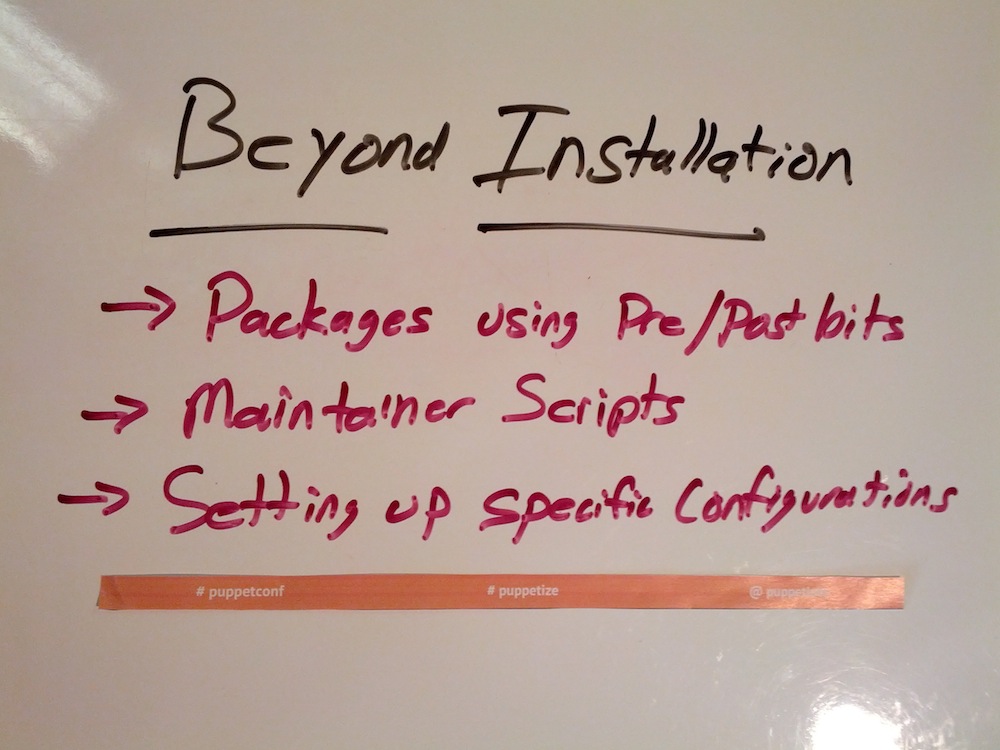 Beyond Installation
→ Packages using Pre/Post bits
→ Maintainer Scripts
→ Setting up specific configurations
# puppetconf # puppetize